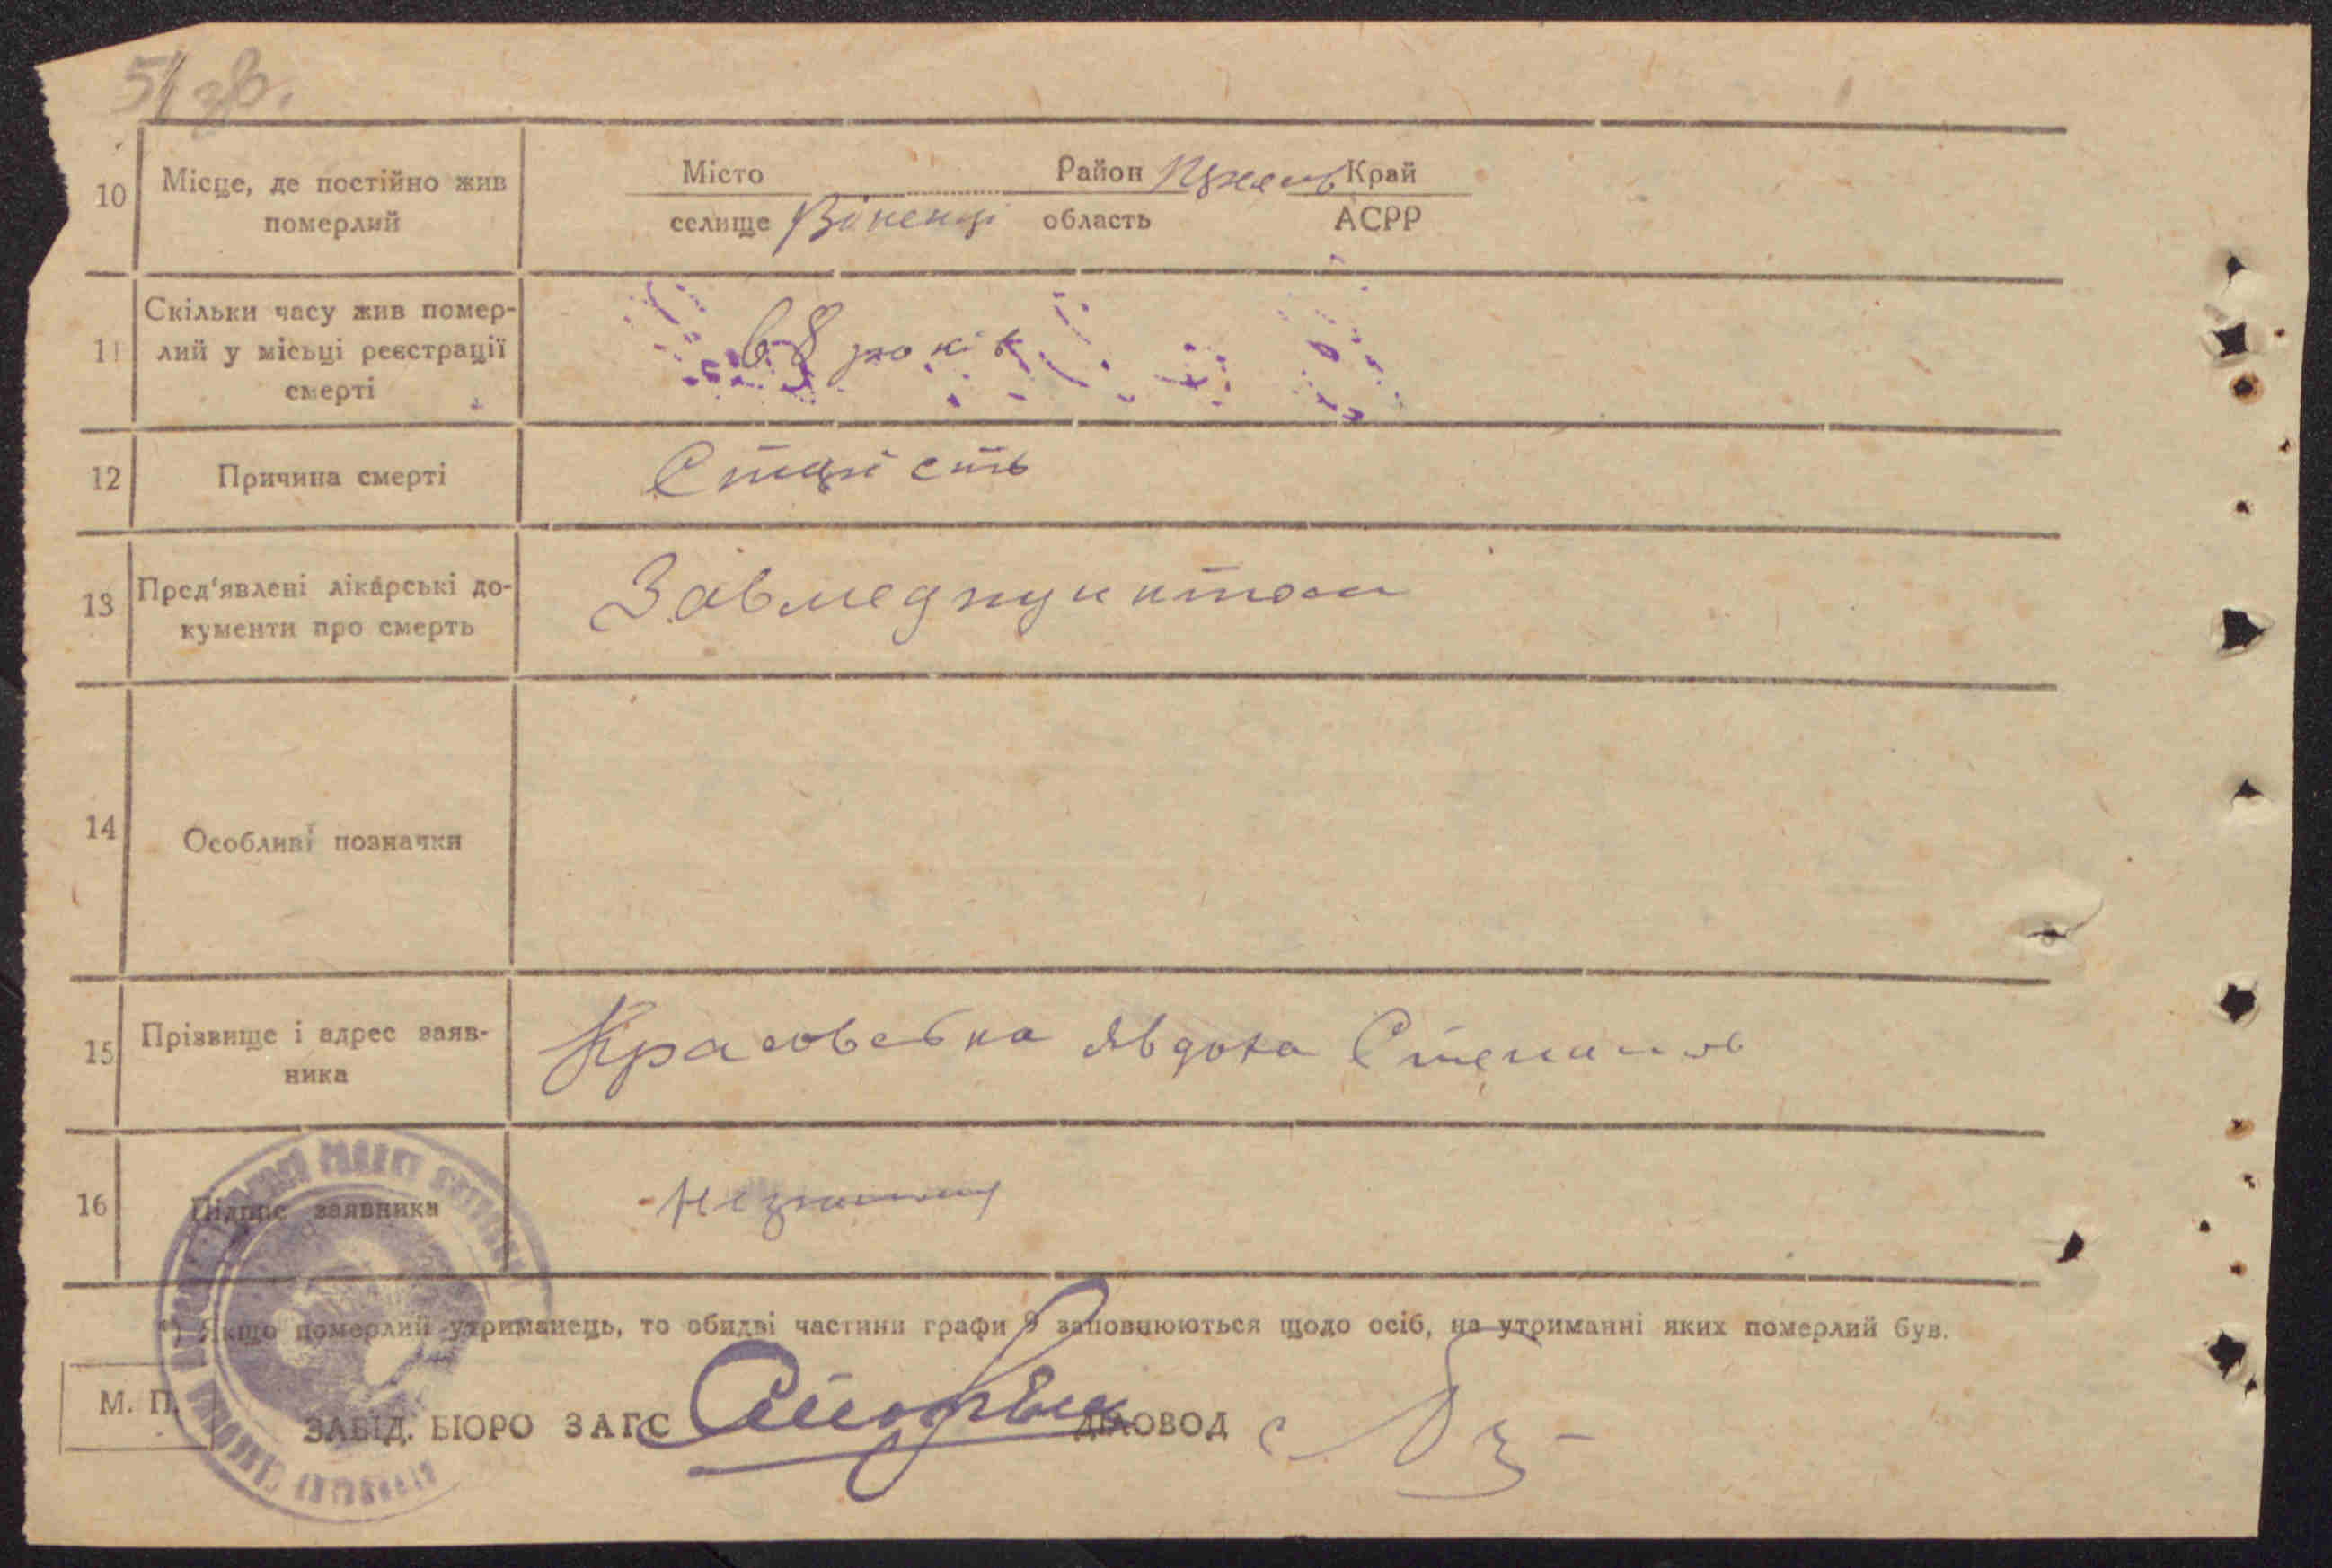 51 зв.
10 Місце, де постійно жив померлий
Місто Район Край
селище Віненці область АСРР
11 Скільки часу жив помер-
лий у місьці реєстрації
смерті
68 років
12 Причина смерті Старість
13 Пред'явлені лікарські до-
кументи про смерть
Завмедпунктом
14 Особливі позначки
15 Прізвище і адрес заяв-
ника
Красовська Явдоха Степанов
16 Підпис заявника
*) Якщо померлий утриманець, то обидві частини графи 9 заповнюються щодо осіб, на утриманні яких померлий був.
М. П.
ЗАВІД. БЮРО ЗАГС ДІЛОВОД